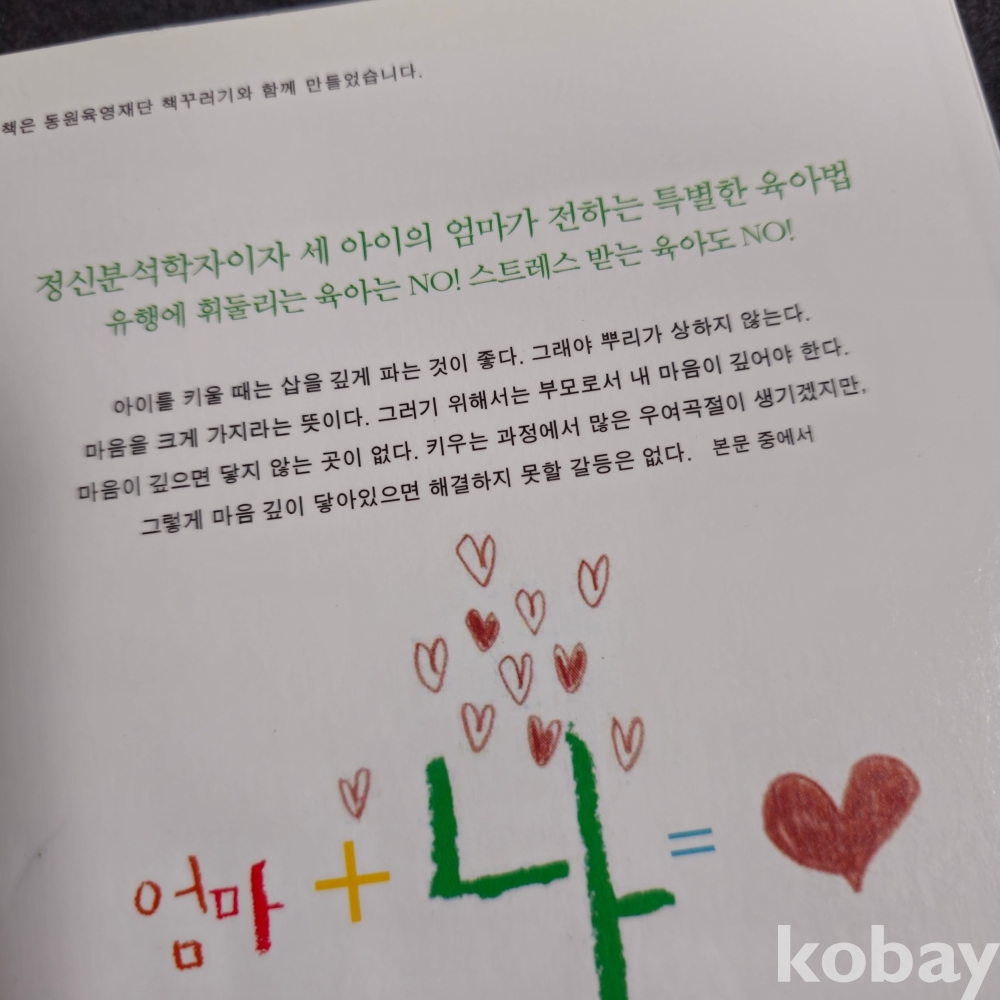 책은 동원육영재단 책꾸러기와 함께 만들었습니다.
정신분석학자이자 세 아이의 엄마가 전하는 특별한 육아법
유행에 휘둘리는 육아는 NO! 스트레스 받는 육아도 NO!
아이를 키울 때는 삽을 깊게 파는 것이 좋다. 그래야 뿌리가 상하지 않는다.
마음을 크게 가지라는 뜻이다. 그러기 위해서는 부모로서 내 마음이 깊어야 한다.
마음이 깊으면 닿지 않는 곳이 없다. 키우는 과정에서 많은 우여곡절이 생기겠지만,
그렇게 마음 깊이 닿아있으면 해결하지 못할 갈등은 없다. 본문 중에서
엄마 + 나 =
kobay